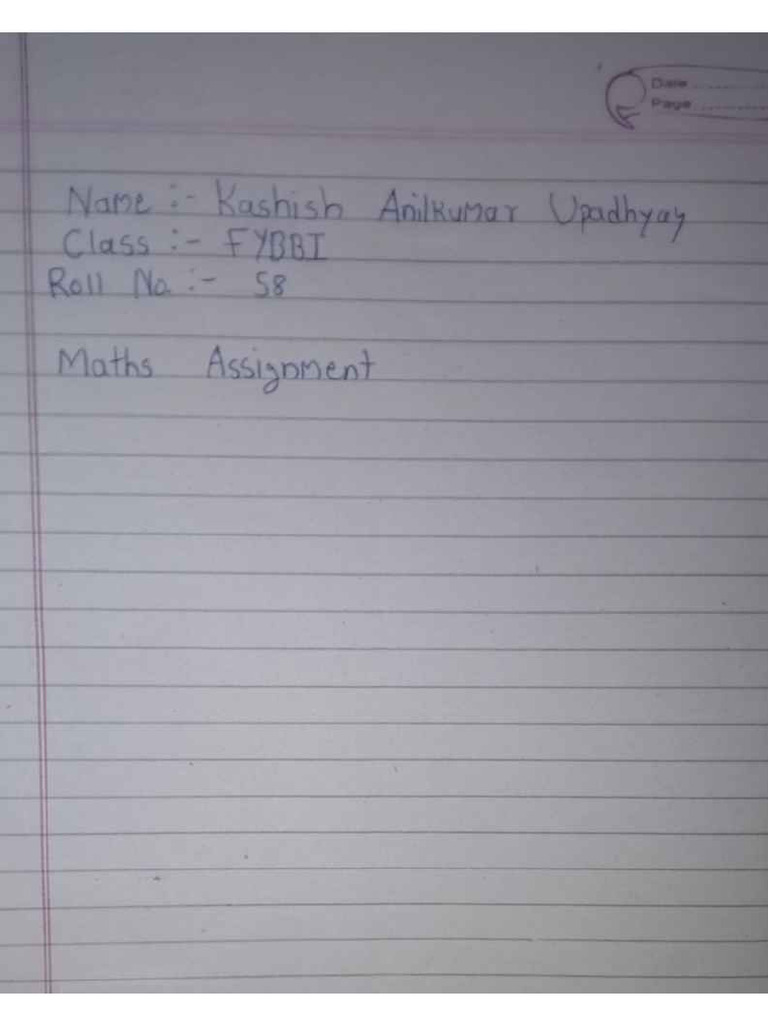 Date
Page
Name :- Kashish Anilkumar Upadhyay
Class :- FYBBI
Roll No :- 58
Maths Assignment